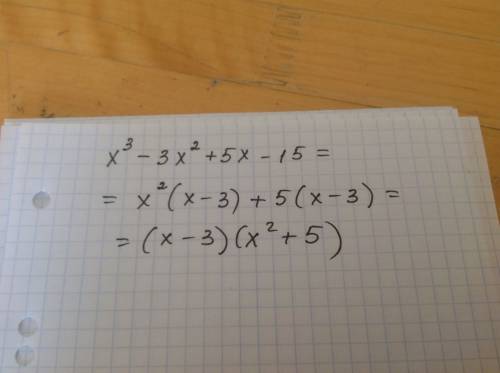 x³ - 3x² + 5x - 15 =
= x²(x - 3) + 5(x - 3) =
= (x - 3)(x² + 5)